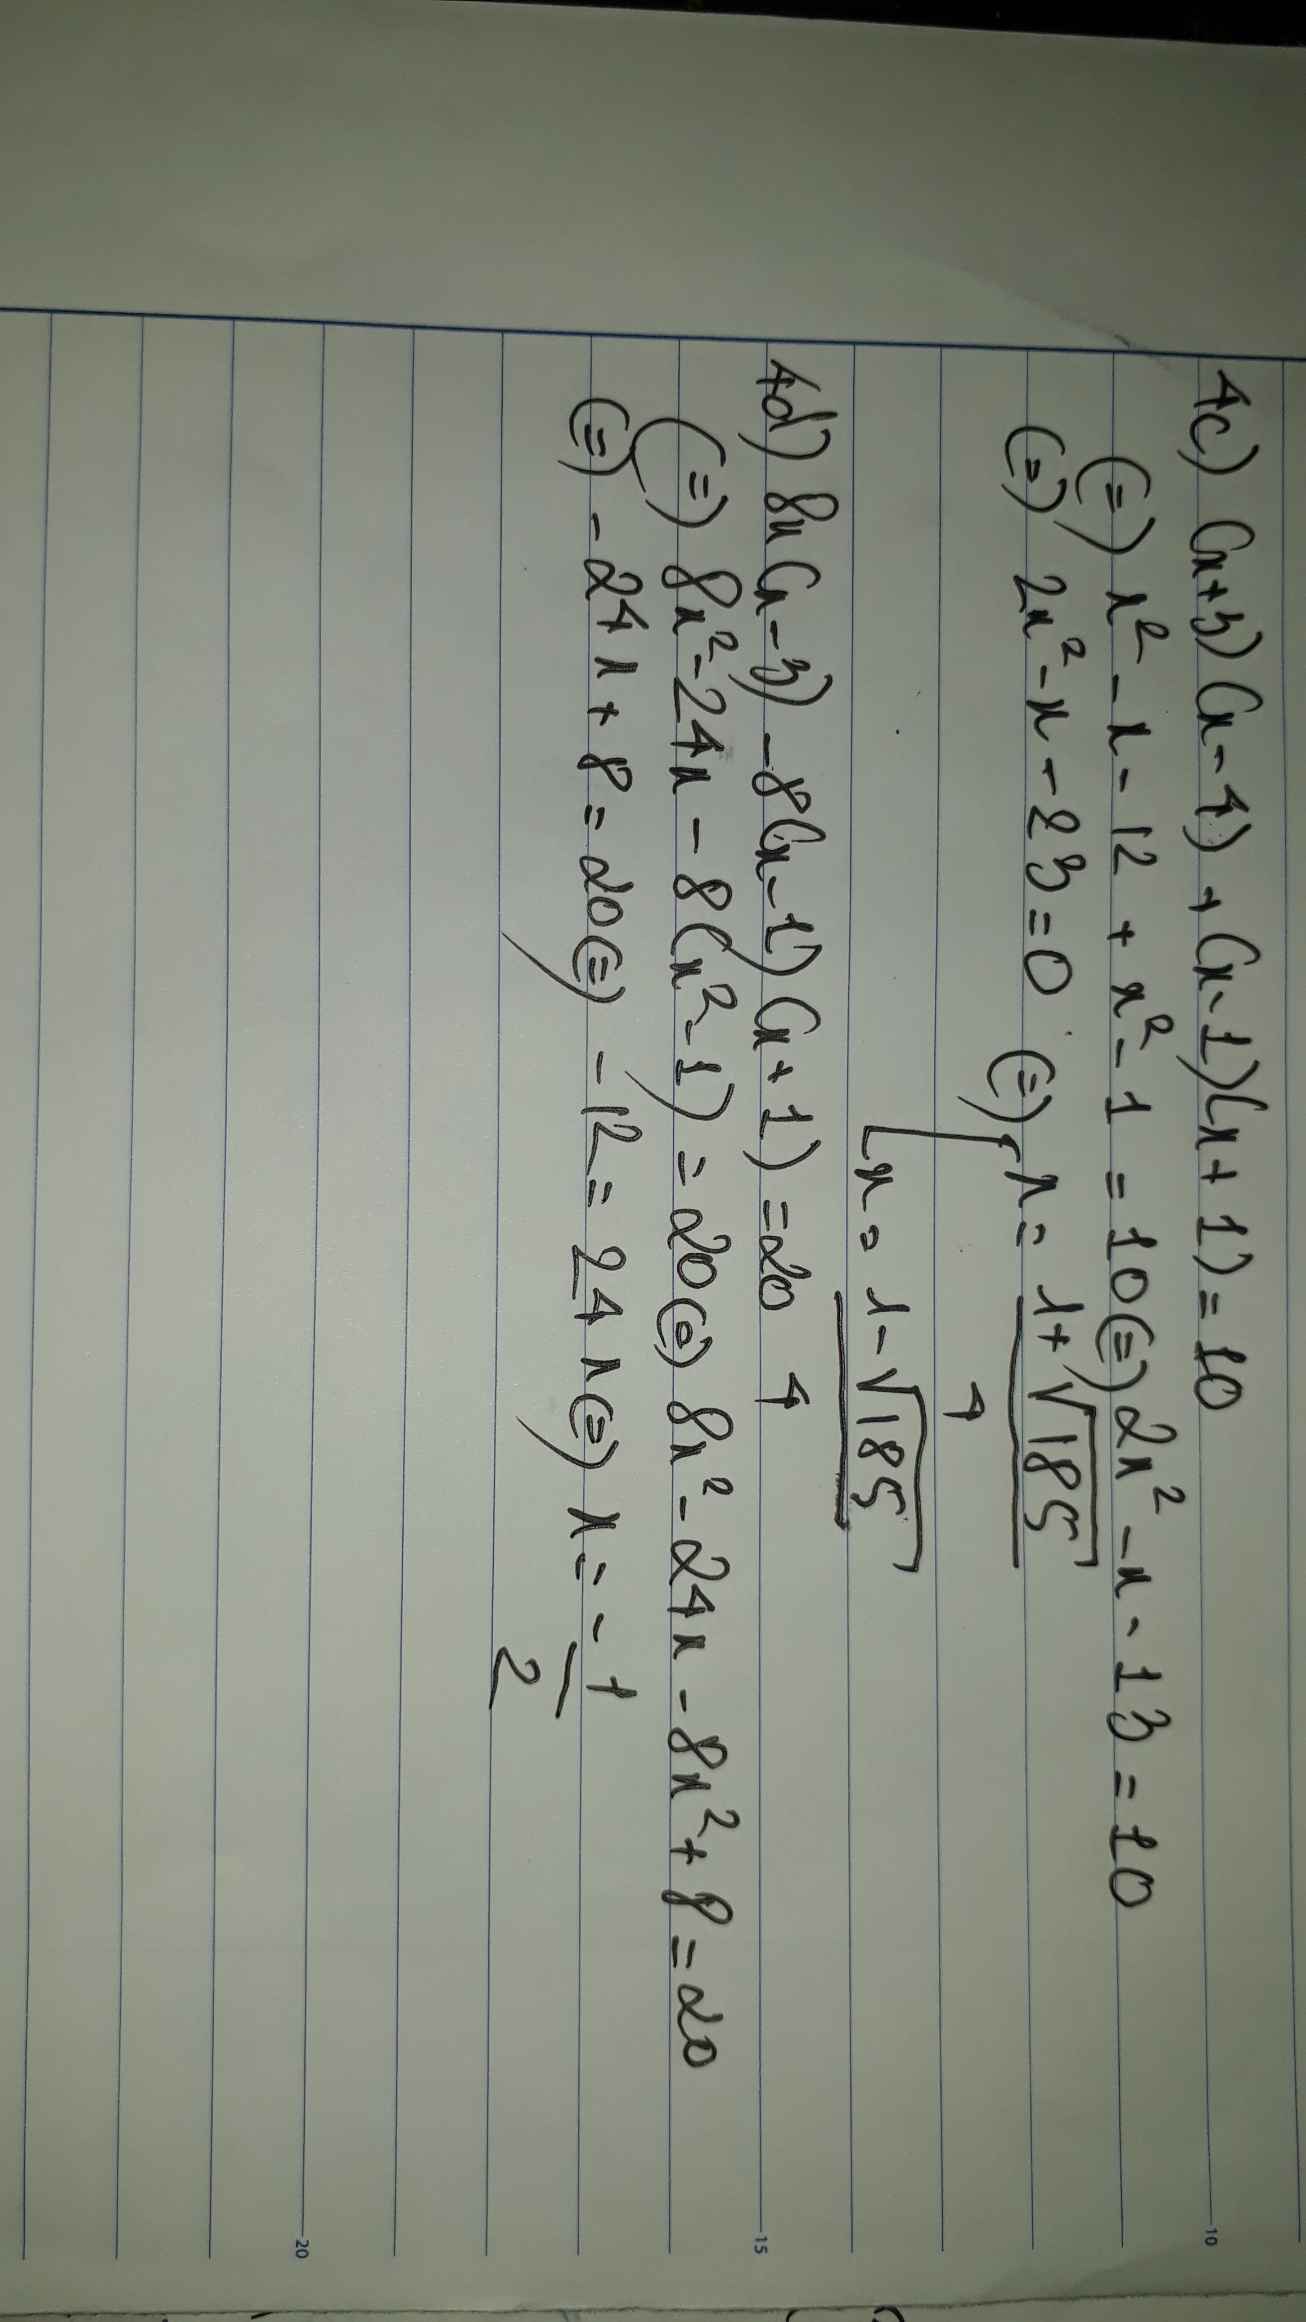 4c) (x+3)(x-4) + (x-1)(x+1) = 10
(=) x² - x - 12 + x² - 1 = 10 (=) 2x² - x - 13 = 10
(=) 2x² - x - 23 = 0 (=) [ x = 1+√185 / 4
[ x = 1-√185 / 4
4d) 8x(x-3) - 8(x-1)(x+1) = 20
(=) 8x² - 24x - 8(x² - 1) = 20 (=) 8x² - 24x - 8x² + 8 = 20
(=) - 24x + 8 = 20 (=) - 12 = 24x (=) x = - 1/2
-10
-15
-20